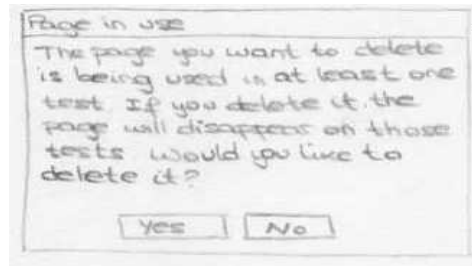 Page in use
The page you want to delete
is being used in at least one
test. If you delete it, the
page will disappear on those
tests. Would you like to
delete it?
Yes
No